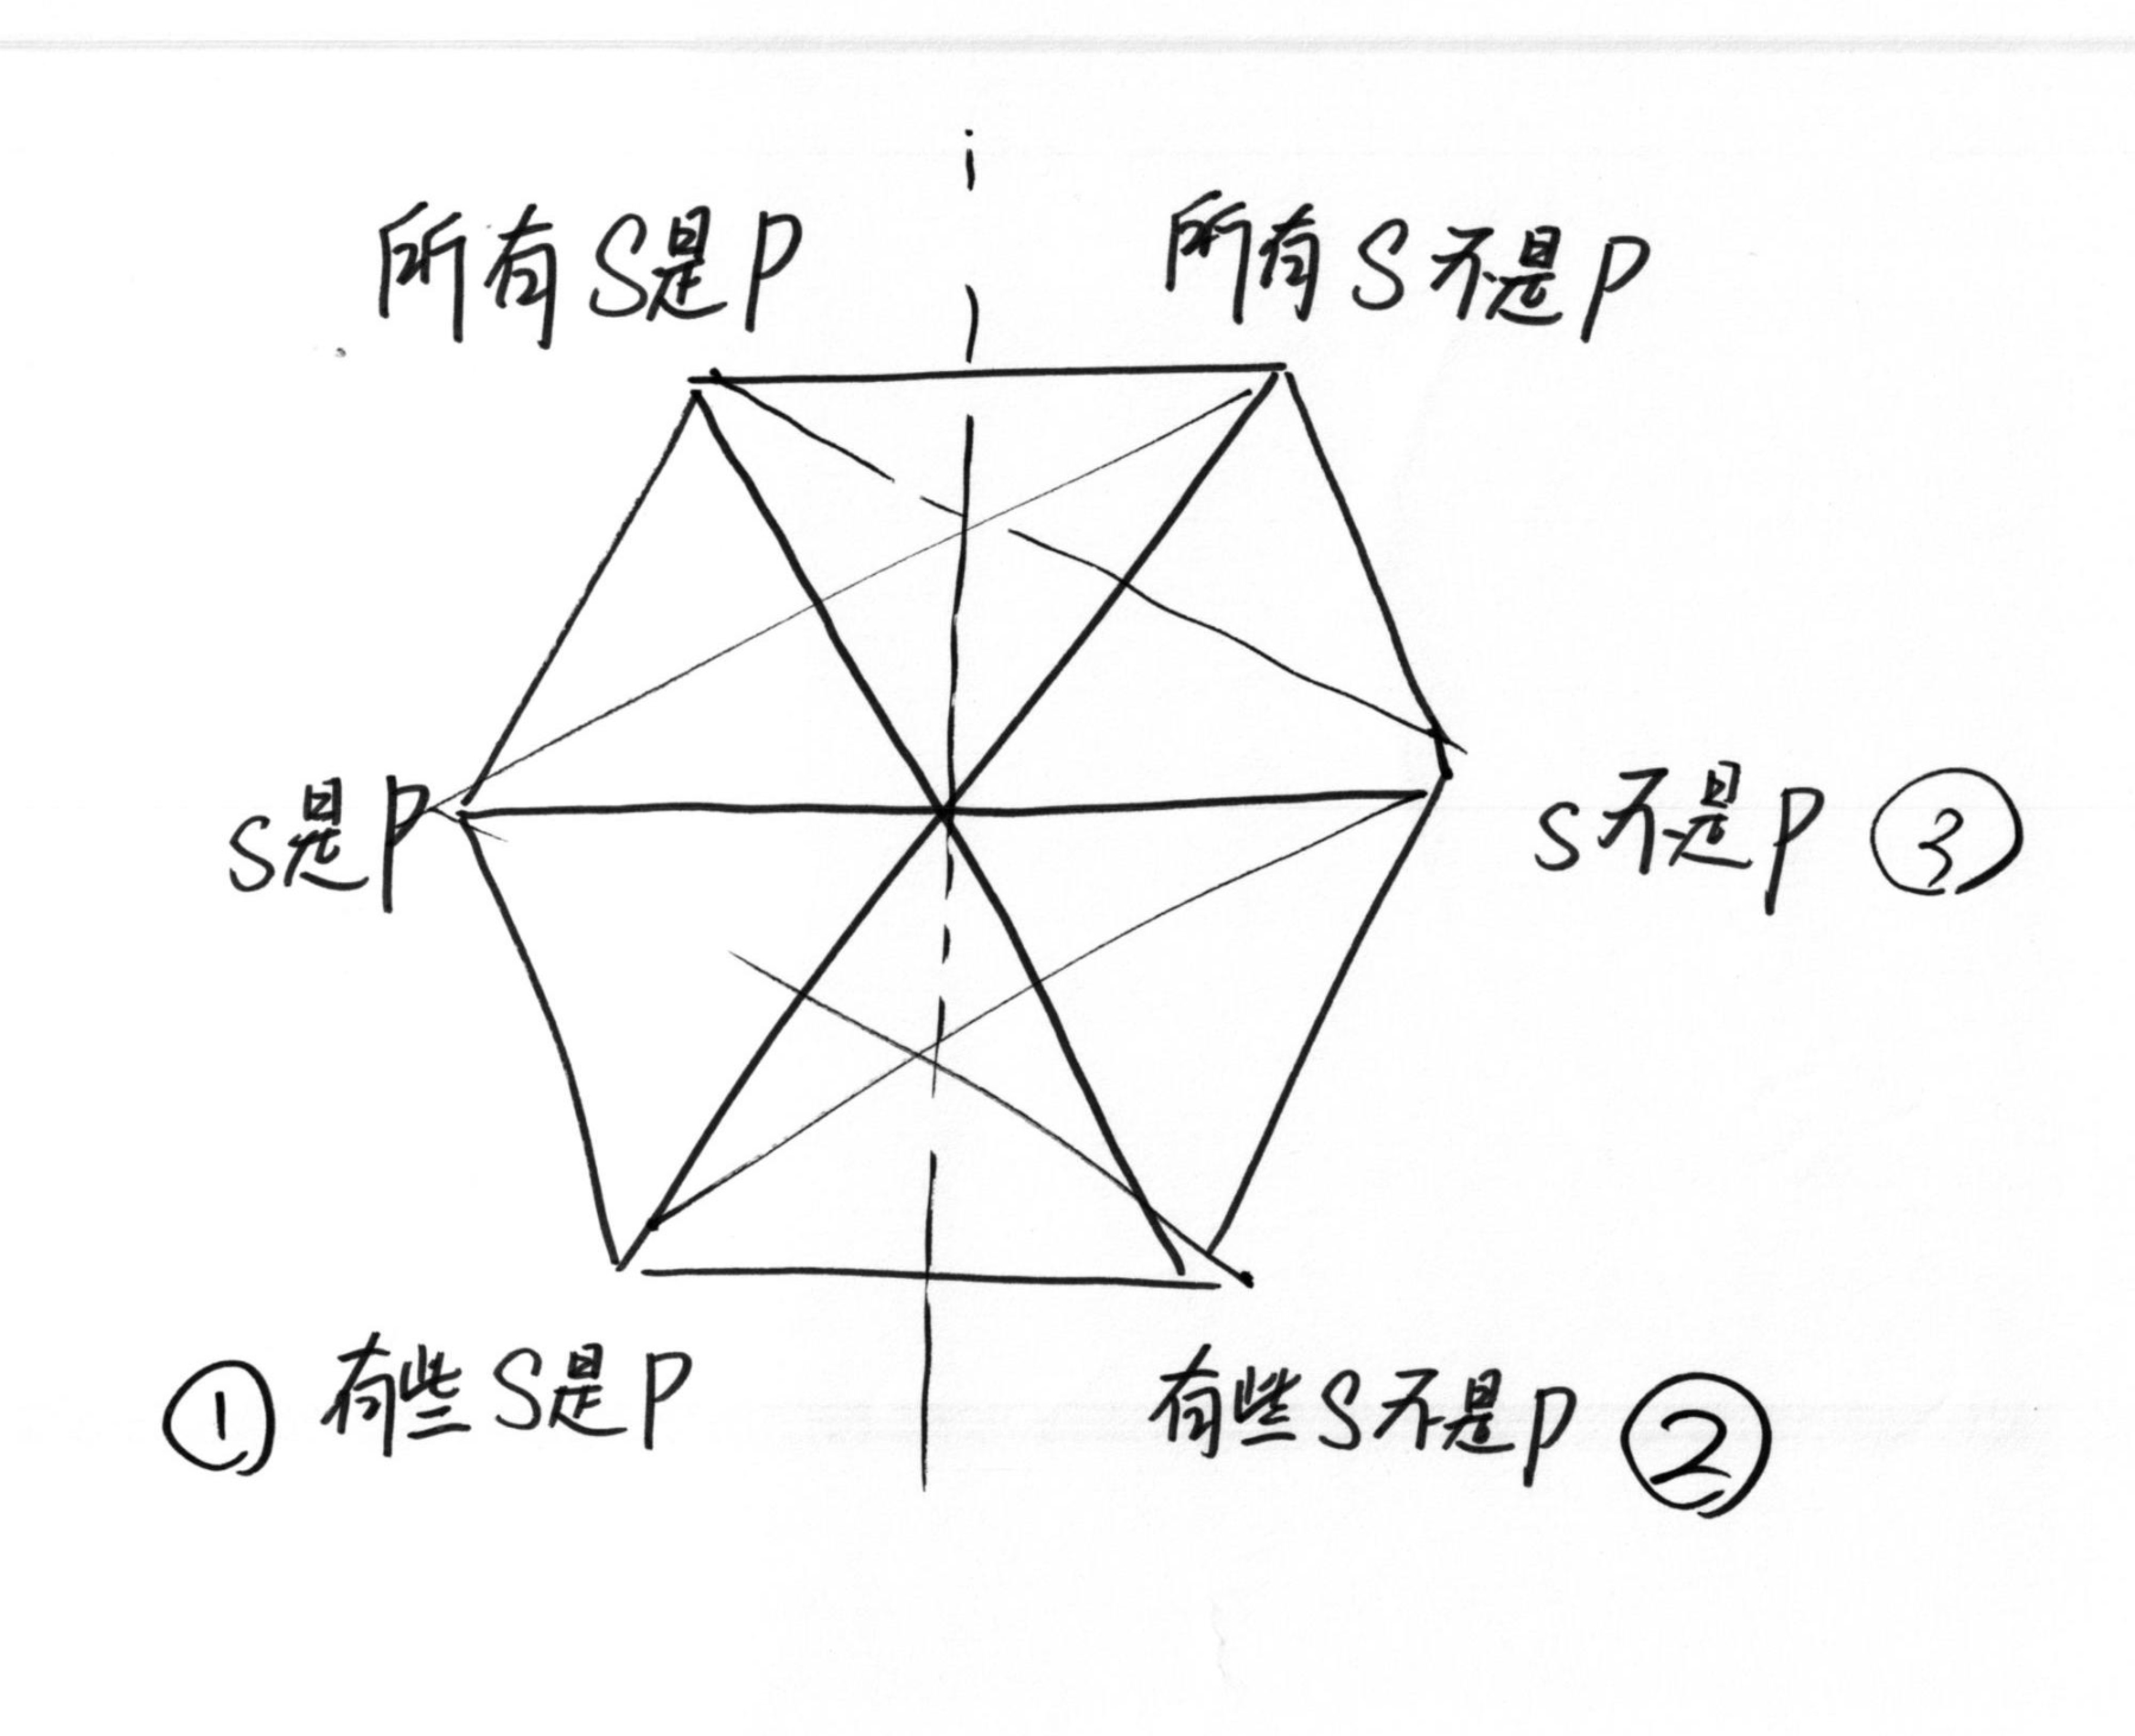 所有S是P
所有S不是P
S是P
S不是P ③
① 有些S是P
有些S不是P ②